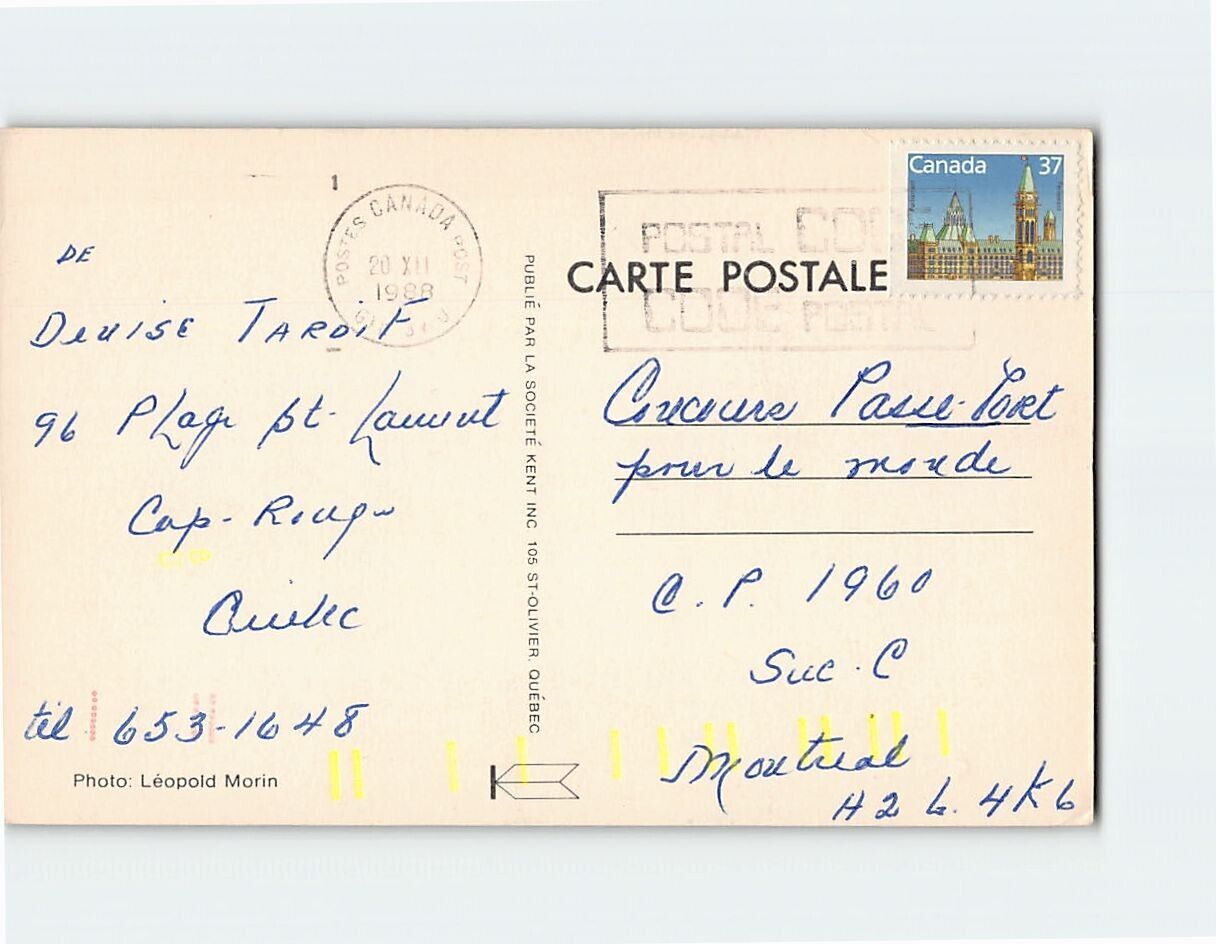 Canada 37
1
POSTES CANADA POST
20 XII
1988
POSTAL CODE
CODE POSTAL
CARTE POSTALE
DE
Denise Tardif
96 Plage St-Laurent
Cap-Rouge
Québec
tél 653-1648
Photo: Léopold Morin
PUBLIÉ PAR LA SOCIETÉ KENT INC 105 ST-OLIVIER, QUÉBEC
K
Concours Passe-Port
pour le monde
C.P. 1960
Suc. C
Montreal
H2L 4K6